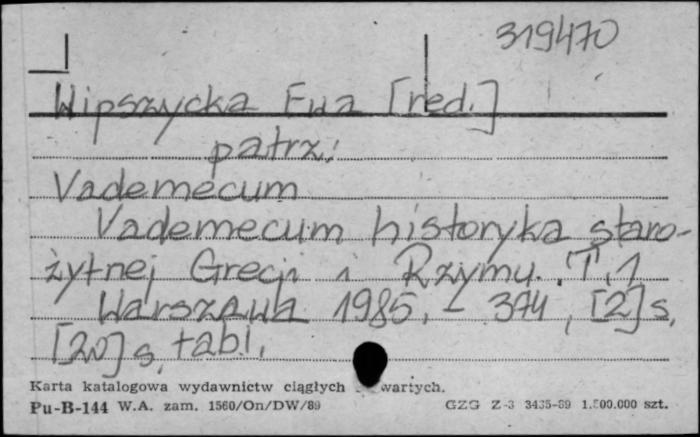 319470
Wipszycka Ewa [red.]
patrz:
Vademecum
Vademecum historyka staro-
żytnej Grecji i Rzymu. T. 1
Warszawa 1985. - 374, [2] s,
[20] s, tabl.
Karta katalogowa wydawnictw ciągłych wartych.
Pu-B-144 W.A. zam. 1560/On/DW/89 GZG Z-3 3435-89 1.500.000 szt.